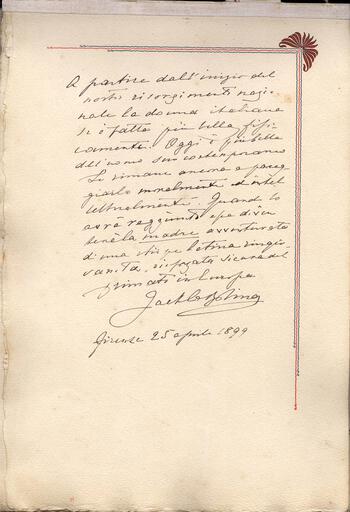 A partire dall'inizio del
nostro risorgimento nazio
nale la donna italiana
si è fatta più bella fisi
camente. Oggi è più bella
dell'uomo suo contemporaneo
Le rimane ancora a pareg
giarlo moralmente ed intel
lettualmente. Quando lo
avrà raggiunto
la madre avventurata
di una stirpe latina ringio
vanita, sicura del
primato in Europa

Firenze 25 aprile 1899